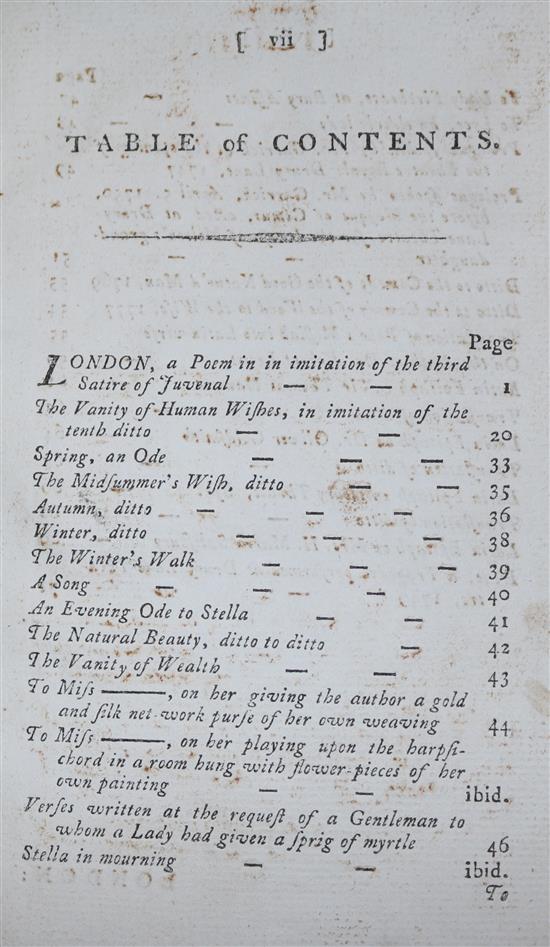 [ vii ]
TABLE of CONTENTS.
Page
LONDON, a Poem in in imitation of the third
Satire of Juvenal — — 1
The Vanity of Human Wiſhes, in imitation of the
tenth ditto — — 20
Spring, an Ode — — — 33
The Midſummer's Wiſh, ditto — — 35
Autumn, ditto — — — 36
Winter, ditto — — — 38
The Winter's Walk — — — 39
A Song — — — 40
An Evening Ode to Stella — — 41
The Natural Beauty, ditto to ditto — 42
The Vanity of Wealth — — 43
To Miſs ———, on her giving the author a gold
and ſilk net-work purſe of her own weaving 44
To Miſs ———, on her playing upon the harpſi-
chord in a room hung with flower-pieces of her
own painting — — ibid.
Verſes written at the requeſt of a Gentleman to
whom a Lady had given a ſprig of myrtle 46
Stella in mourning — — ibid.
To